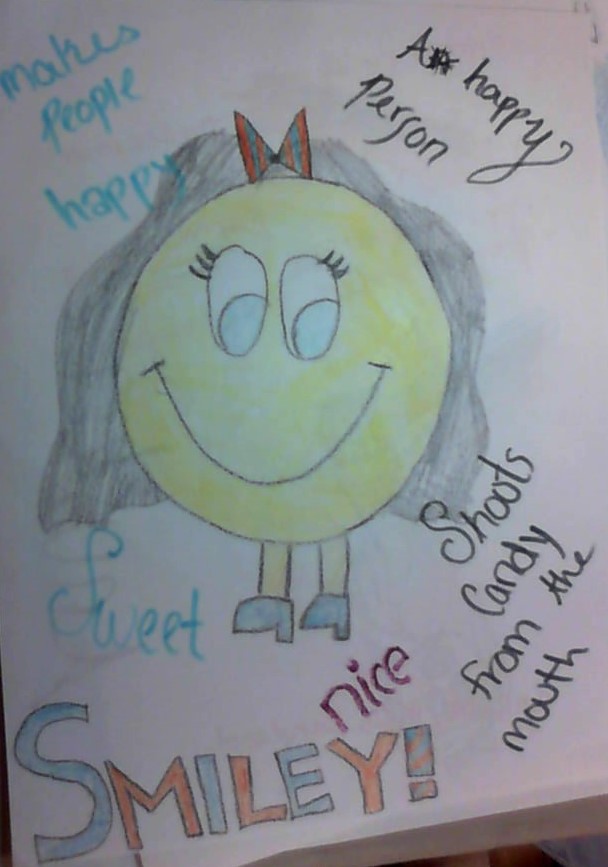 makes
People
happy
A happy
Person
Shoots
Candy
from the
mouth
Sweet
nice
SMILEY!